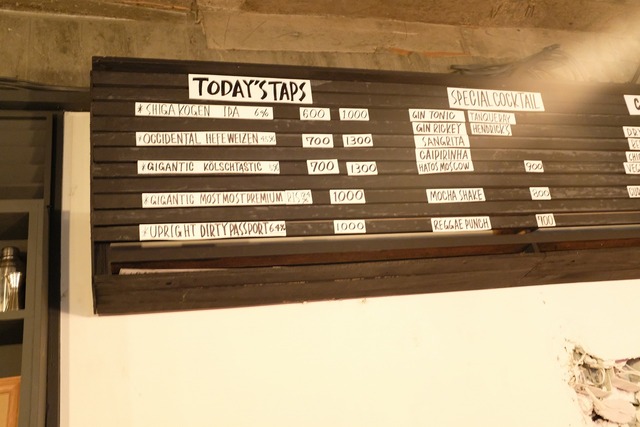 TODAY'S TAPS
*SHIGA KOGEN IDA 6% 600 1000
*OCCIDENTAL HEFEWEIZEN 700 1300
*GIGANTIC KÖLSCHTASTIC 700 1300
*GIGANTIC MOSTMOSTPREMIUM 1000
*UPRIGHT DIRTY PASSPORT 1000
SPECIAL COCKTAIL
GIN TONIC TANQUERAY
GIN RICKEY HENDRICKS
SANGRITA
CAIPIRINHA
HATOS MOSCOW 900
MOCHA SHAKE 800
REGGAE PUNCH 900